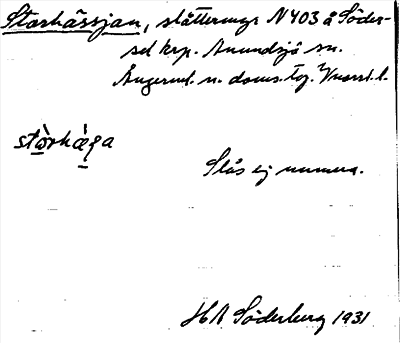 Storhässjan, slåttermyr N403 å Söder-
sel krp. Anundsjö sn.
Ångerml. n. doms. tg. V. norrl. l.
stɑ̀rhæ̀ʂa
Slås ej numera.
HA Söderberg 1931